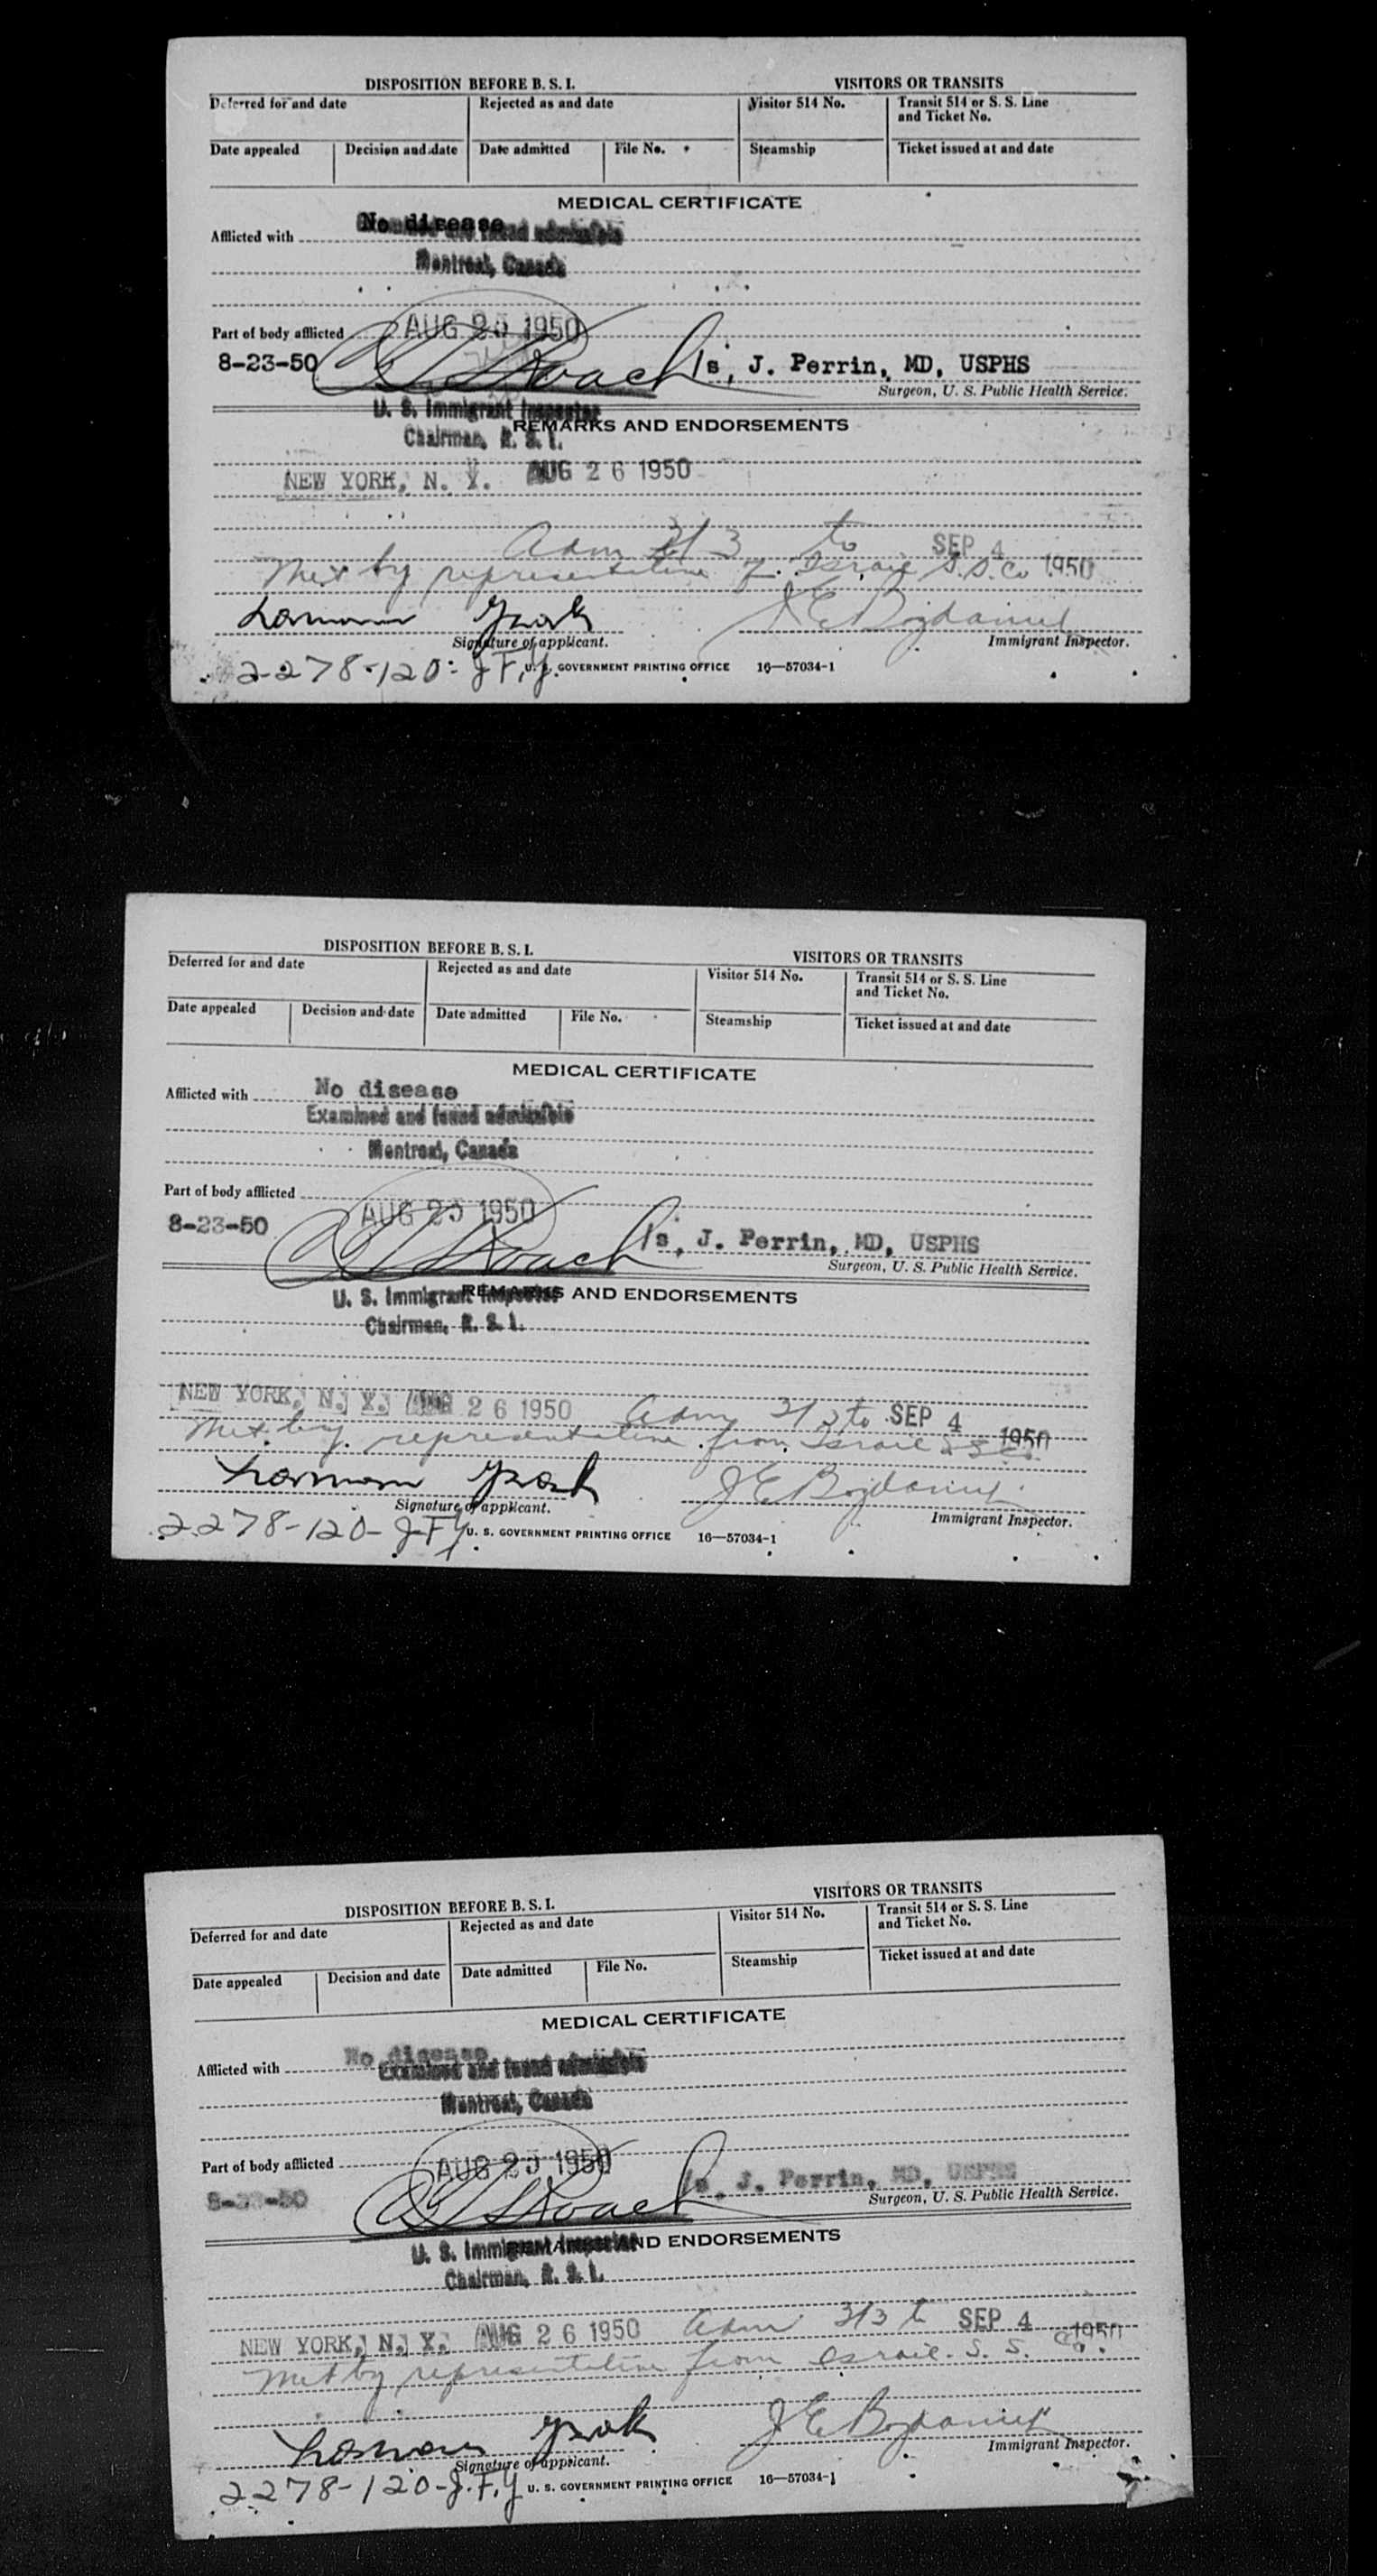 DISPOSITION BEFORE B. S. I.
VISITORS OR TRANSITS
Deferred for and date
Rejected as and date
Visitor 514 No.
Transit 514 or S. S. Line
and Ticket No.
Date appealed
Decision and date
Date admitted
File No.
Steamship
Ticket issued at and date
MEDICAL CERTIFICATE
Afflicted with No disease
found admissible
Montreal, Canada
Part of body afflicted
AUG 25 1950
8-23-50
Roach
/s, J. Perrin, MD, USPHS
Surgeon, U. S. Public Health Service.
U. S. Immigrant Inspector
REMARKS AND ENDORSEMENTS
Chairman, B. S. I.
NEW YORK, N. Y. AUG 26 1950
Adm 3/3 to SEP 4 1950
Met by representative of Israel S.S. Co
Signature of applicant.
Immigrant Inspector.
2278-120-J.F.Y.
U. S. GOVERNMENT PRINTING OFFICE 16—57034-1
DISPOSITION BEFORE B. S. I.
VISITORS OR TRANSITS
Deferred for and date
Rejected as and date
Visitor 514 No.
Transit 514 or S. S. Line
and Ticket No.
Date appealed
Decision and date
Date admitted
File No.
Steamship
Ticket issued at and date
MEDICAL CERTIFICATE
Afflicted with No disease
Examined and found admissible
Montreal, Canada
Part of body afflicted
AUG 25 1950
8-23-50
Roach
/s, J. Perrin, MD, USPHS
Surgeon, U. S. Public Health Service.
U. S. Immigrant Inspector
REMARKS AND ENDORSEMENTS
Chairman, B. S. I.
NEW YORK, N. Y. AUG 26 1950 Adm 3/3 to SEP 4 1950
Met by representative from Israel S S Co.
Signature of applicant.
Immigrant Inspector.
2278-120-JFY
U. S. GOVERNMENT PRINTING OFFICE 16—57034-1
DISPOSITION BEFORE B. S. I.
VISITORS OR TRANSITS
Deferred for and date
Rejected as and date
Visitor 514 No.
Transit 514 or S. S. Line
and Ticket No.
Date appealed
Decision and date
Date admitted
File No.
Steamship
Ticket issued at and date
MEDICAL CERTIFICATE
Afflicted with No disease
Examined and found admissible
Montreal, Canada
Part of body afflicted
AUG 25 1950
8-23-50
Roach
/s, J. Perrin, MD, USPHS
Surgeon, U. S. Public Health Service.
U. S. Immigrant Inspector
AND ENDORSEMENTS
Chairman, B. S. I.
NEW YORK, N. Y. AUG 26 1950 Adm 3/3 to SEP 4 1950
Met by representative from Israel S. S. Co.
Signature of applicant.
Immigrant Inspector.
2278-120-J.F.Y
U. S. GOVERNMENT PRINTING OFFICE 16—57034-1